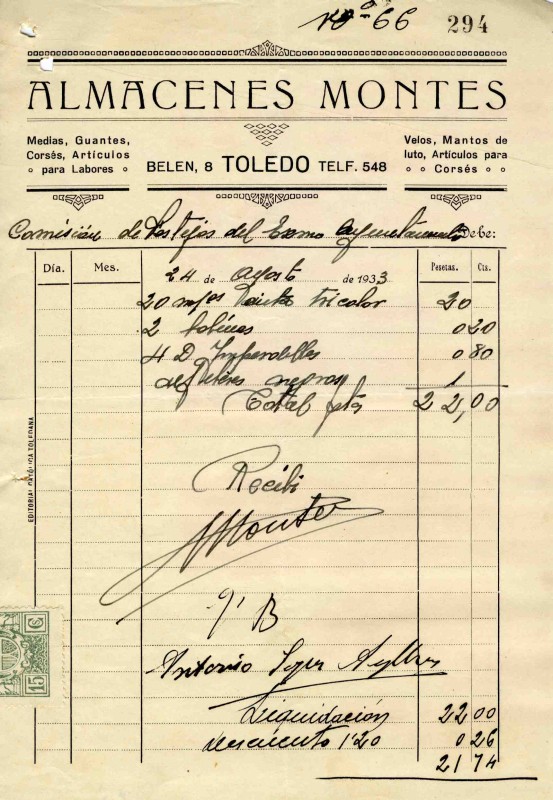 Nº 66 294
ALMACENES MONTES
Medias, Guantes,
Corsés, Artículos
para Labores
BELEN, 8 TOLEDO TELF. 548
Velos, Mantos de
luto, Artículos para
Corsés
Comisión de Festejos del Excmo Ayuntamiento Debe:
Día. Mes. Pesetas. Cts.
24 de Agosto de 1933
20 tricolor 20
2 0 20
4 D Imperdibles 0 80
negros 1
Total ptas 22,00
Recibi
Montes
EDITORIAL CATÓLICA TOLEDANA
Vº B
Antonio
15 C
Liquidación 22 00
descuento 1'20 0 26
21 74